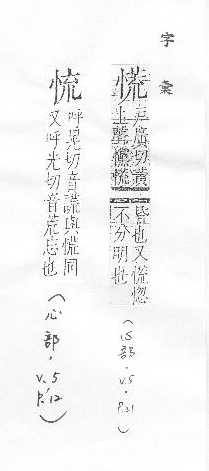 字彙
慌
廣切荒
上聲慌
也又慌惚
不分明也
（心部．v.5 p.21）
呼晃切音謊與慌同
又呼光切音荒忘也
（心部．v.5 p.12）